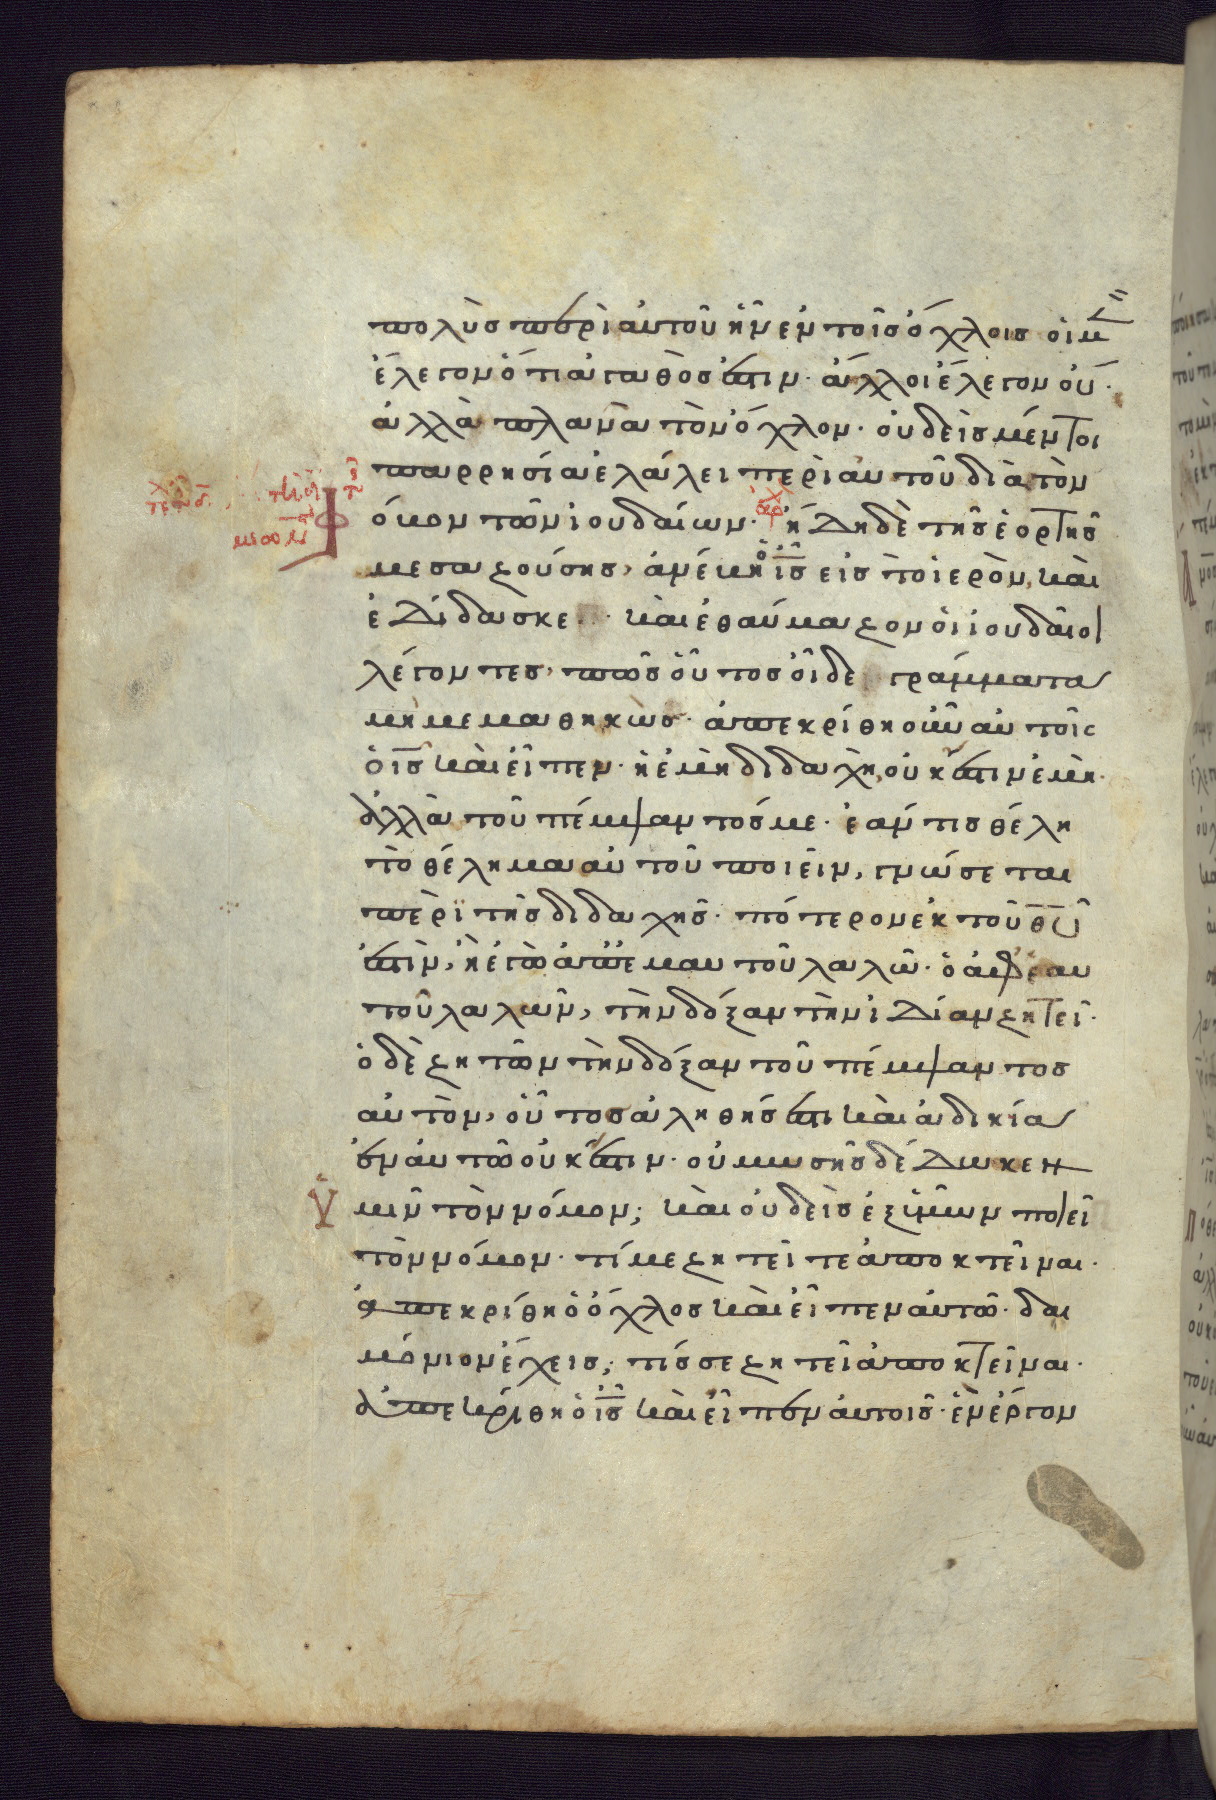 πολὺσ περὶ αὐτοῦ ἦν ἐν τοῖσ ὄχλοισ οἱ μ̅
ἔλεγον ὅτι ἀγαθὸσ ἐστιν· ἄλλοι ἔλεγον οὔ·
ἀλλὰ πλανᾶ τὸν ὄχλον· οὐδεὶσ μέντοι
παρρησία ἐλάλει περὶ αὐτοῦ διὰ τὸν
φόβον τῶν ἰουδαίων· ἀρχ ἤδη δὲ τῆσ ἑορτῆσ
μεσαζούσησ, ἀνέβη ὁ ι̅σ̅ εἰσ τὸ ἱερὸν, καὶ
ἐδίδασκε· καὶ ἐθαύμαζον οἱ ἰουδαῖοι
λέγοντεσ, πῶσ οὗτοσ οἶδε γράμματα
μὴ μεμαθηκὼσ· ἀπεκρίθη οὖν αὐτοῖς
ὁ ι̅σ̅ καὶ εἶπεν· ἡ ἐμὴ διδαχὴ, οὐκ ἔστιν ἐμὴ·
ἀλλὰ τοῦ πέμψαντόσ με· ἐάν τισ θέλη
τὸ θέλημα αὐτοῦ ποιεῖν, γνώσεται
περὶ τῆσ διδαχῆσ· πότερον ἐκ τοῦ θ̅υ̅
ἐστὶν, ἢ ἐγὼ ἀπ' ἐμαυτοῦ λαλῶ· ὁ ἀφ' ἑαυ
τοῦ λαλῶν, τὴν δόξαν τὴν ἰδίαν ζητεῖ·
ὁ δὲ ζητῶν τὴν δόξαν τοῦ πέμψαντοσ
αὐτὸν, οὗτοσ ἀληθήσ ἐστι καὶ ἀδικία
ἐν αὐτῶ οὐκ ἔστιν· οὐ μωσῆσ δέδωκεν
ὑμῖν τὸν νόμον; καὶ οὐδεὶσ ἐξ ὑμῶν ποιεῖ
τὸν νόμον· τί με ζητεῖτε ἀποκτεῖναι·
ἀπεκρίθη ὁ ὄχλοσ καὶ εἶπεν αὐτῶ· δαι
μόνιον ἔχεισ; τίσ σε ζητεῖ ἀποκτεῖναι·
ἀπεκρίθη ὁ ι̅σ̅ καὶ εἶπεν αὐτοῖσ· ἓν ἔργον